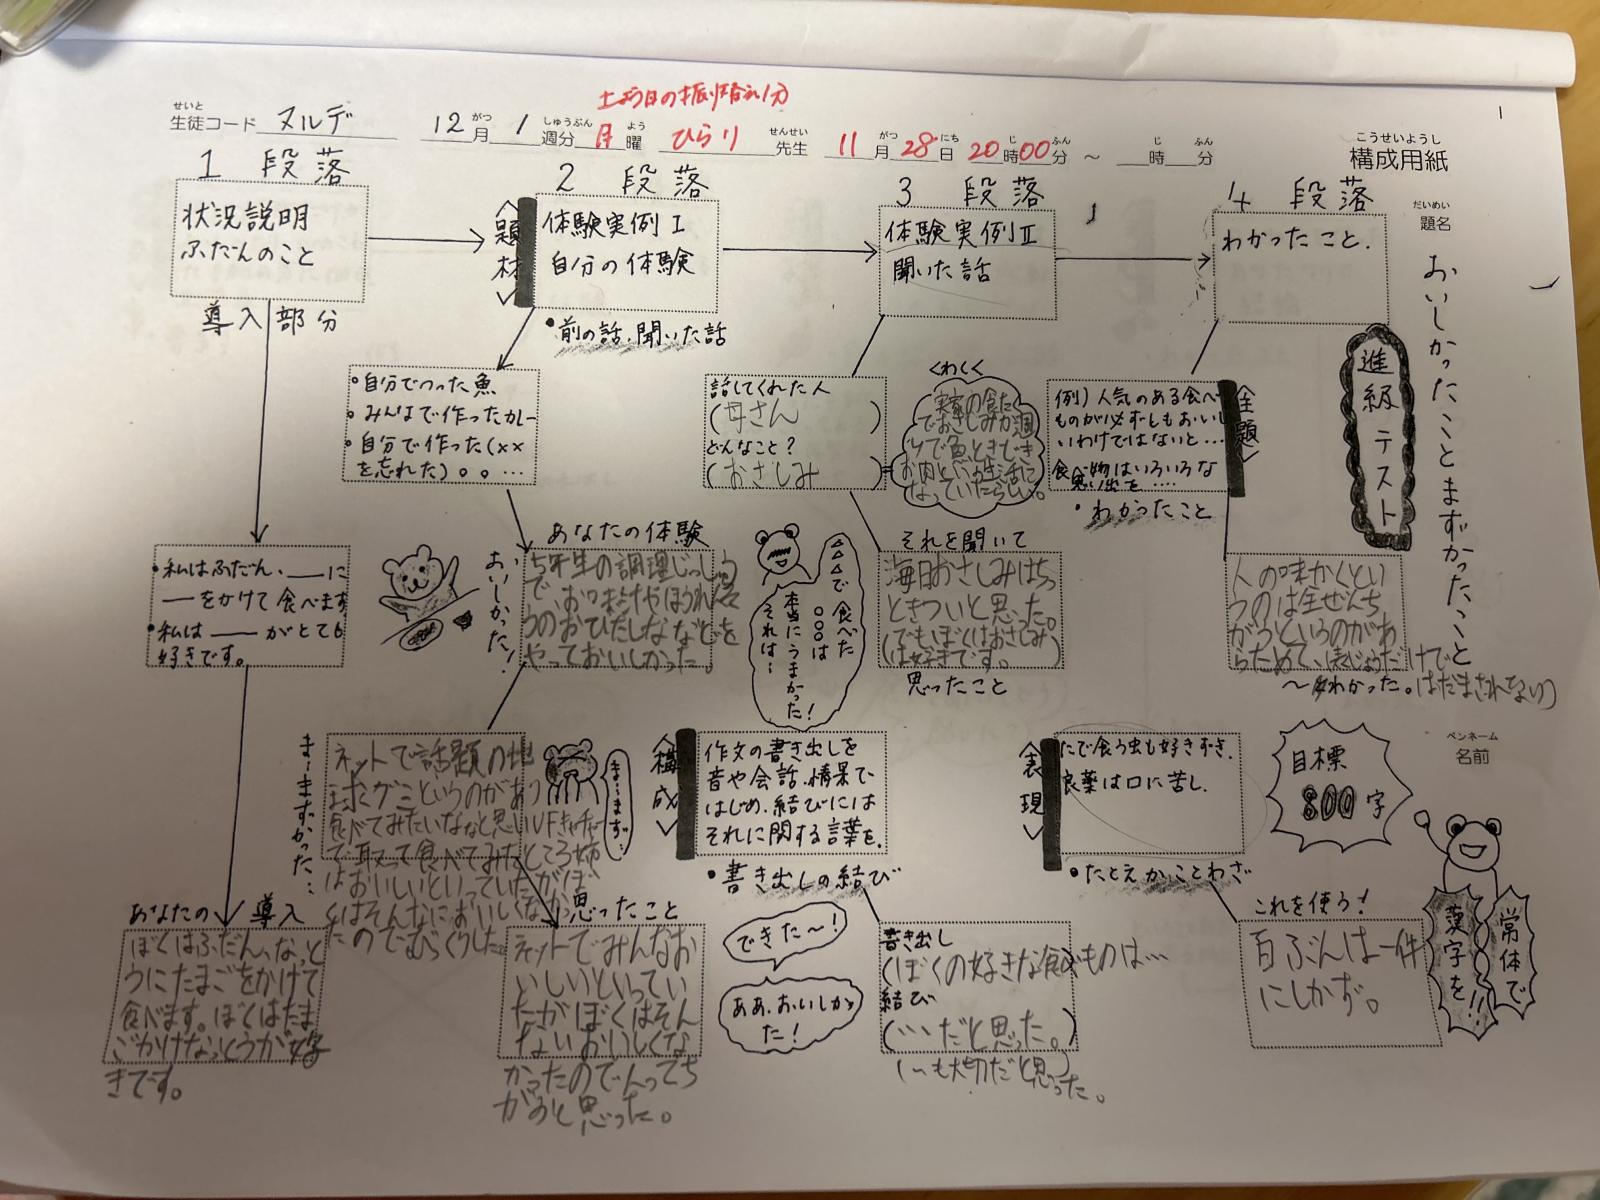 土よう日の振り替え分
せいと
生徒コード ヌルデ
12月 1週分 月曜 ひらり 先生 11月28日 20時00分 ～ 時 分
がつ しゅうぶん よう せんせい がつ にち じ ふん じ ふん
こうせいようし
構成用紙
1
だいめい
題名
おいしかったことまずかったこと
進級テスト
1 段落
状況説明
ふだんのこと
導入部分
2 段落
〈題材〉
体験実例Ⅰ
自分の体験
・前の話、聞いた話
3 段落
体験実例Ⅱ
聞いた話
4 段落
わかったこと.
・自分でつった魚
・みんなで作ったカレー
・自分で作った(××
を忘れた)。。…
話してくれた人
(母さん )
どんなこと?
(おさしみ )
くわしく
実家の食た
でおさしみが週
7で魚ときどき
お肉という生活に
なっていたらしい。
〈主題〉
例)人気のある食べ
ものが必ずしもおいし
いわけではないと…
食べ物はいろいろな
思い出を ….
・わかったこと
・私はふだん、__に
__をかけて食べます
・私は __ がとても
好きです。
おいしかった!
あなたの体験
5年生の調理じっしゅう
で、お味汁やほうれん
うのおひたしなどを
やっておいしかった。
△△△で食べた
○○○は
本当にうまかった!
それは～
それを聞いて
海日おさしみはち
ときついと思った。
(でもぼくはおさしみ)
は好きです。
思ったこと
人の味かくとい
うのは全ぜんち
がうというのがあ
らためて、
～わかった。はだまされない)
まーまずかった…
ネットで話題の地
球グミというのがあり
食べてみたいなと思いUFキャチャー
で取って食べてみたところ姉
はおいしいといっていたがぼ
くはそんなにおいしくなかっ
たのでびっくりした。
まーまず…
〈構成〉
作文の書き出しを
音や会話、情景で
はじめ、結びには
それに関する言葉を.
・書き出しの結び
〈表現〉
たで食う虫も好きずき.
良薬は口に苦し.
・たとえかことわざ
ペンネーム
名前
目標
800字
常体で
漢字を!!
あなたの 導入
ぼくはふだん、なっと
うにたまごをかけて
食べます。ぼくはたま
ごかけなっとうが好
きです。
思ったこと
ネットでみんなお
いしいといってい
たがぼくはそん
ないおいしくな
かったので人ってち
がうと思った。
できた～!
ああ、おいしかっ
た!
書き出し
(ぼくの好きな食べものは…
結び
(…だと思った。)
(～も大切だと思った。)
これを使う!
百ぶんは一件
にしかず。